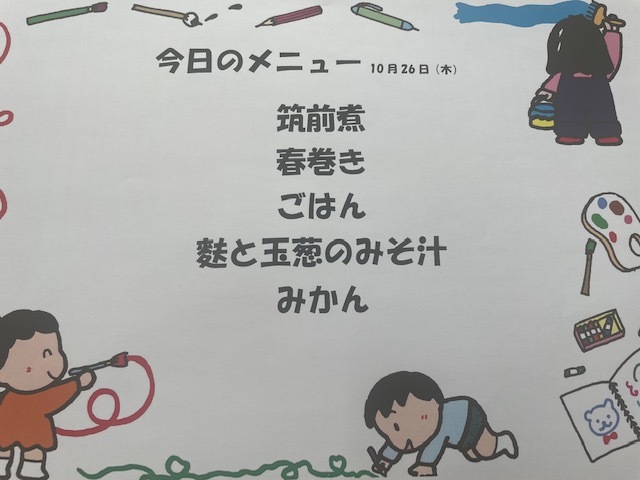 今日のメニュー 10月26日（木）
筑前煮
春巻き
ごはん
麩と玉葱のみそ汁
みかん